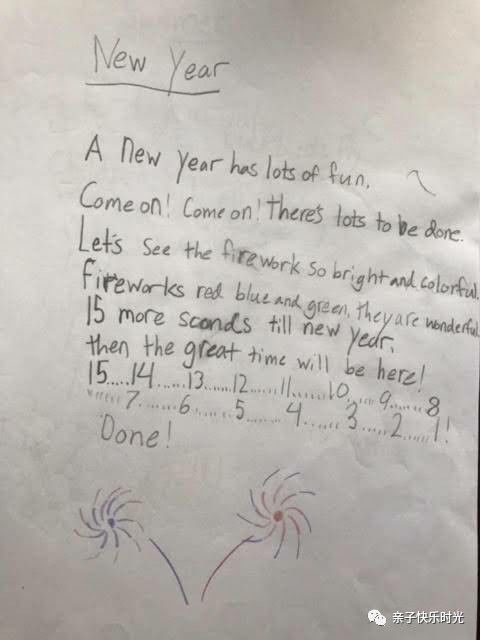 New Year
A new year has lots of fun.
Come on! Come on! There's lots to be done.
Let's see the firework so bright and colorful.
Fireworks red blue and green, they are wonderful.
15 more sconds till new year,
then the great time will be here!
15.....14......13......12......11.......10......9.......8
......7........6.......5.......4.......3......2......1!
Done!
亲子快乐时光